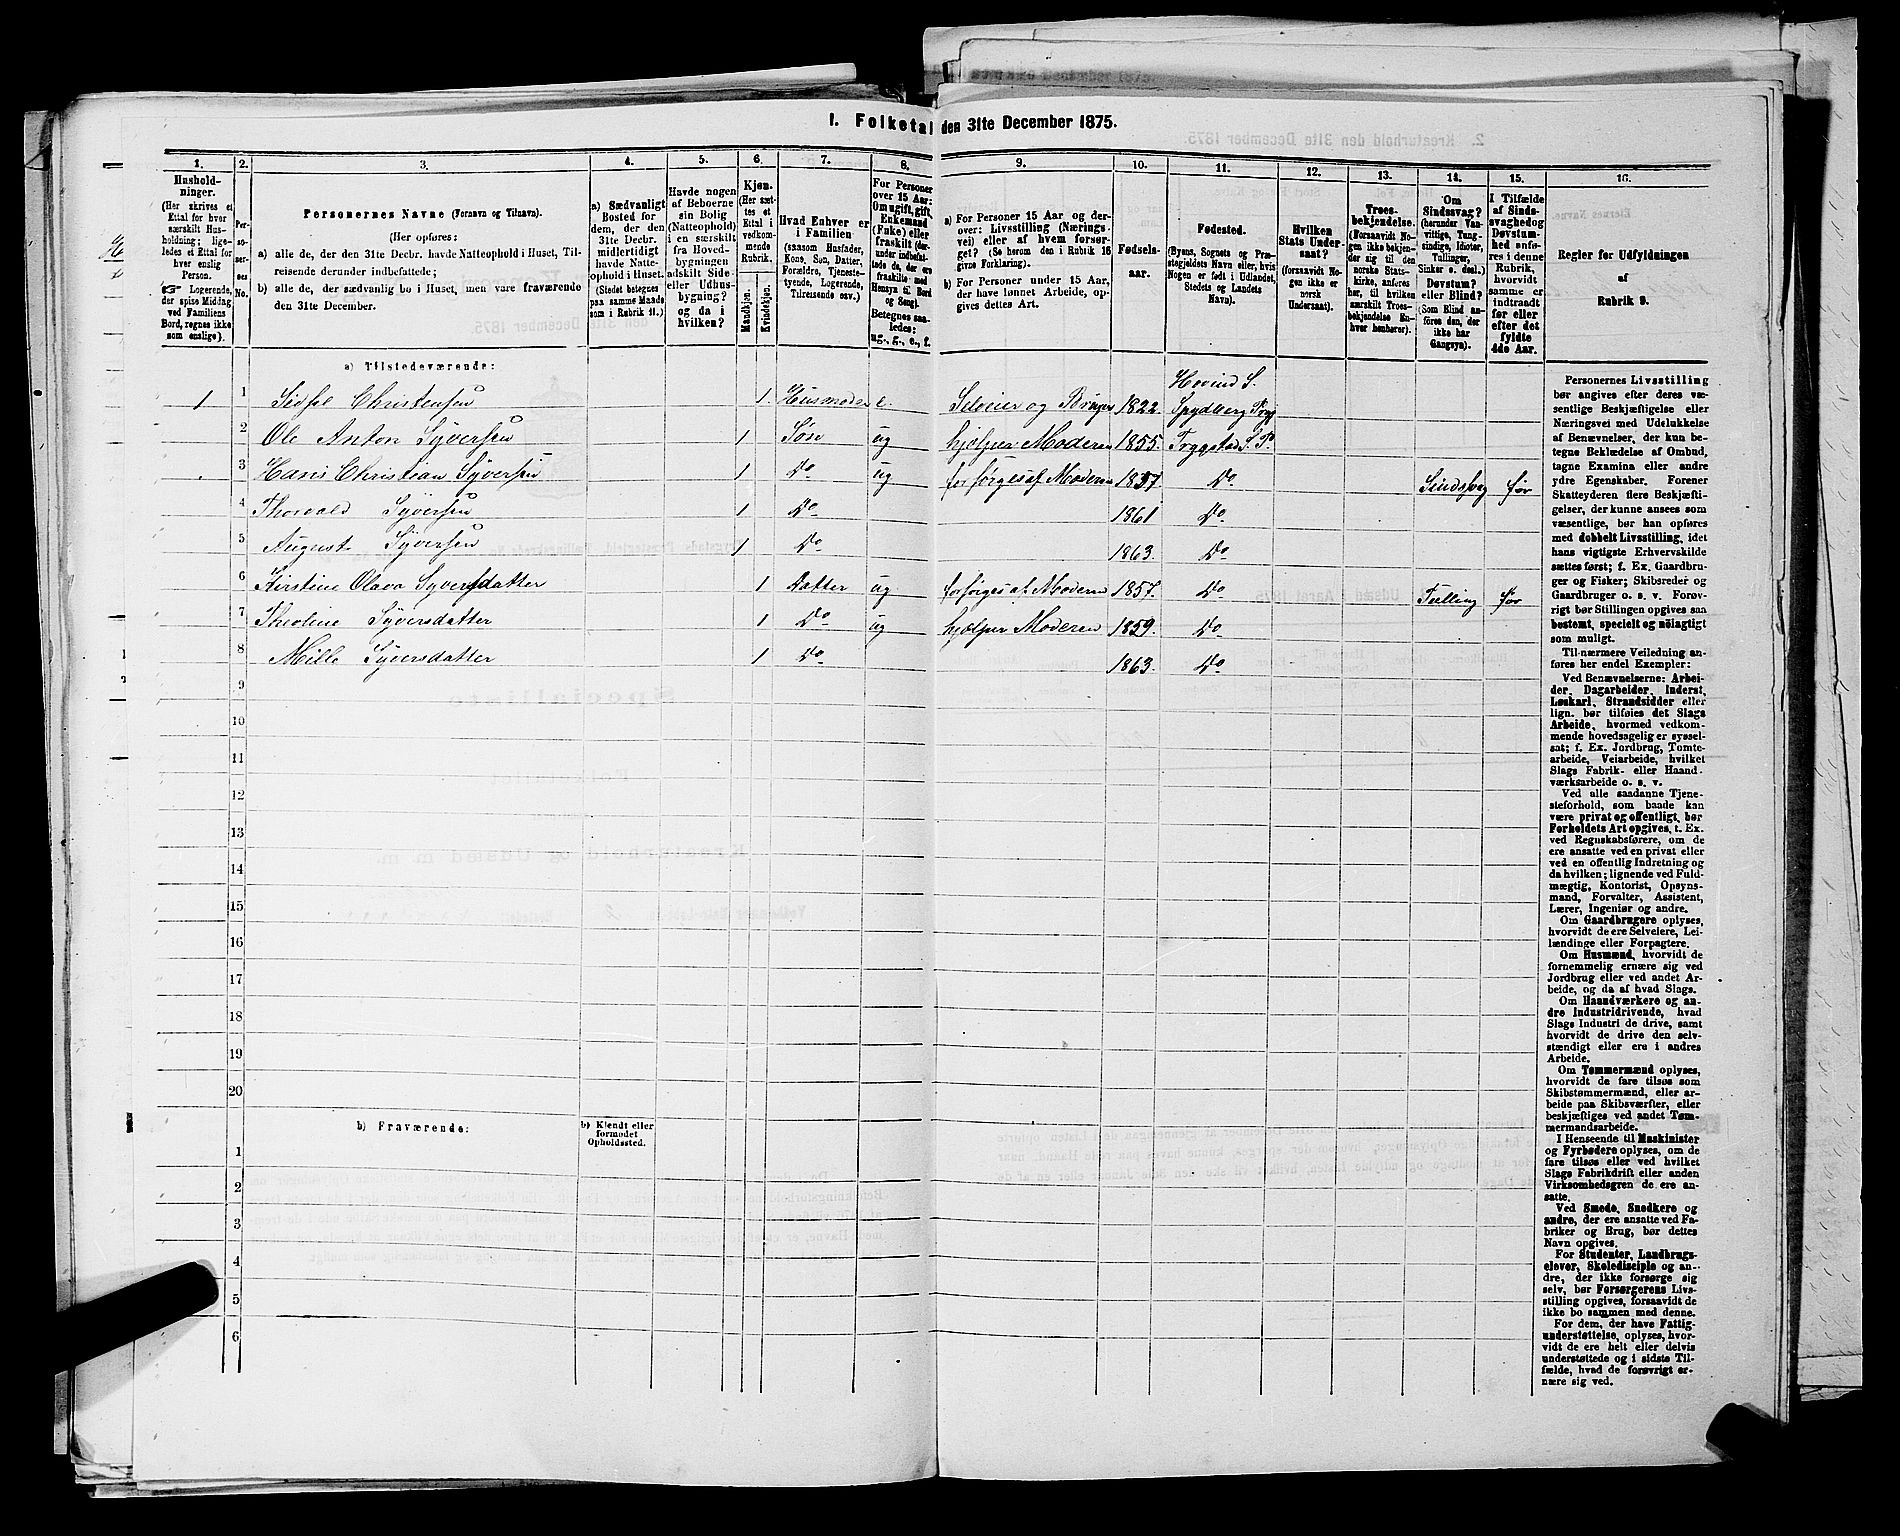 1. Folketal den 31te December 1875.
1. 2. 3. 4. 5. 6. 7. 8. 9. 10. 11. 12. 13. 14. 15. 16.
Hushold-
ninger.
(Her skrives et
Ettal for hver
særskilt Hus-
holdning; lige-
ledes et Ettal
for hver
enslig
Person.
☞ Logerende,
der spise Middag
ved Familiens
Bord, regnes ikke
som enslige).
Per-
so-
ner-
nes
No.
Personernes Navne (Fornavn og Tilnavn).
(Her opføres:
a) alle de, der den 31te Decbr. havde Natteophold i Huset, Til-
reisende derunder indbefattede;
b) alle de, der sædvanlig bo i Huset, men vare fraværende
den 31te December.
a) Sædvanligt
Bosted for
dem, der den
31te Decbr.
midlertidigt
havde Natte-
ophold i Huset.
(Stedet betegnes
paa samme Maade
som i Rubrik 11.)
Havde nogen
af Beboerne
sin Bolig
(Natteophold)
i en særskilt
fra Hoved-
bygningen
adskilt Side-
eller Udhus-
bygning?
og da i
hvilken?
Kjøn.
(Her sæt-
tes et
Ettal i
vedkom-
mende
Rubrik.
Mandkjøn.
Kvindekjøn.
Hvad Enhver er
i Familien
(saasom Husfader,
Kone, Søn, Datter,
Forældre, Tjeneste-
tyende, Logerende,
Tilreisende osv.)
For Personer
over 15 Aar:
Om ugift, gift,
Enkemand
(Enke) eller
fraskilt (der-
under indbefat-
tede de, der ere
fraskilte med
Hensyn til Bord
og Seng).
Betegnes saa-
ledes:
ug., g., e., f.
a) For Personer 15 Aar og der-
over: Livsstilling (Nærings-
vei) eller af hvem forsør-
get? (Se herom den i Rubrik 16
givne Forklaring).
b) For Personer under 15 Aar,
der have lønnet Arbeide, op-
gives dettes Art.
Fødsels-
aar.
Fødested.
(Byens, Sognets og Præ-
stegjeldets Navn eller, hvis
Nogen er født i Udlandet,
Stedets og Landets
Navn).
Hvilken
Stats Under-
saat?
(forsaavidt No-
gen ikke er
norsk
Undersaat).
Troes-
bekjendelse.
(Forsaavidt No-
gen ikke bekjen-
der sig til den
norske Stats-
kirke, anføres
her, til hvilken
særskilt Troes-
bekjendelse En-
hver henhører).
Om
Sindssvag?
(herunder Van-
vittige, Tung-
sindige, Idioter,
Tullinger,
Sinker o. desl.)
Døvstum?
eller Blind?
(Som Blind an-
føres den, der
ikke har
Gangsyn).
I Tilfælde
af Sinds-
svaghed og
Døvstum-
hed anfø-
res i denne
Rubrik,
hvorvidt
samme er
indtraadt
før eller
efter det
fyldte
4de Aar.
Regler for Udfyldningen
af
Rubrik 9.
a) Tilstedeværende:
Hovind S.
1 1 Sidsel Christensen 1. Husmoder e. Selveier og Bruger 1822. Spydberg Prgj
2 Ole Anton Syversen 1 Søn ug hjælper Moderen 1855. Trygstad S. P.
3 Hans Christian Syversen 1 Do ug forsørges af Moderen 1857 Do Sindssvag før
4 Thorvald Syversen 1 Do 1861 Do
5 August Syversen 1 Do 1863. Do
6 Kirstine Olava Syversdatter 1 Datter ug forsørges af Moderen 1857. Do Tulling før
7 Theoline Syversdatter 1 Do ug hjælper Moderen 1859. Do
8 Mille Syversdatter 1 Do 1863. Do
9
10
11
12
13
14
15
16
17
18
19
20
b) Fraværende:
b) Kjendt eller
formodet
Opholdssted.
1
2
3
4
5
6
Personernes Livsstilling
bør angives efter deres væ-
sentlige Beskjæftigelse eller
Næringsvei med Udelukkelse
af Benævnelser, der kun be-
tegne Beklædelse af Ombud,
tagne Examina eller andre
ydre Egenskaber. Forener
Skatteyderen flere Beskjæfti-
gelser, der kunne ansees som
væsentlige, bør han opføres
med dobbelt Livsstilling, idet
hans vigtigste Erhvervskilde
sættes først; f. Ex. Gaardbru-
ger og Fisker; Skibsreder og
Gaardbruger o. s. v. Forøv-
rigt bør Stillingen opgives saa
bestemt, specielt og nöiagtigt
som muligt.
Til nærmere Veiledning an-
føres her endel Exempler:
Ved Benævnelserne: Arbei-
der, Dagarbeider, Inderst,
Løskarl, Strandsidder eller
lign. bør tilføies det Slags
Arbeide, hvormed vedkom-
mende hovedsagelig er syssel-
sat; f. Ex. Jordbrug, Tomte-
arbeide, Veiarbeide, hvilket
Slags Fabrik- eller Haand-
værksarbeide o. s. v.
Ved alle saadanne Tjene-
steforhold, som baade kan
være privat og offentligt, bør
Forholdets Art opgives, t. Ex.
ved Regnskabsførere, om de
ere ansatte ved en privat eller
ved en offentlig Indretning og
da hvilken; lignende ved Fuld-
mægtig, Kontorist, Opsyns-
mand, Forvalter, Assistent,
Lærer, Ingeniør og andre.
Om Gaardbrugere oplyses,
hvorvidt de ere Selveiere, Lei-
lændinge eller Forpagtere.
Om Husmænd, hvorvidt de
fornemmelig ernære sig ved
Jordbrug eller ved andet Ar-
beide, og da af hvad Slags.
Om Haandværkere og an-
dre Industridrivende, hvad
Slags Industri de drive, samt
hvorvidt de drive den selv-
stændigt eller ere i andres
Arbeide.
Om Tømmermænd oplyses,
hvorvidt de fare tilsøs som
Skibstømmermænd, eller ar-
beide paa Skibsværfter, eller
beskjæftiges ved andet Tøm-
mermandsarbeide.
I Henseende til Maskinister
og Fyrbødere oplyses, om de
fare tilsøs eller ved hvilket
Slags Fabrikdrift eller anden
Virksomhedsgren de ere an-
satte.
Ved Smede, Snedkere og
andre, der ere ansatte ved Fa-
briker og Brug, bør dettes
Navn opgives.
For Studenter, Landbrugs-
elever, Skoledisciple og an-
dre, der ikke forsørge sig
selv, bør Forsørgerens Livs-
stilling opgives, forsaavidt de
ikke bo sammen med denne.
For dem, der have Fattig-
understøttelse, oplyses, hvor-
vidt de ere helt eller delvis
understøttede og i sidste Til-
fælde, hvad de forøvrigt er-
nære sig ved.